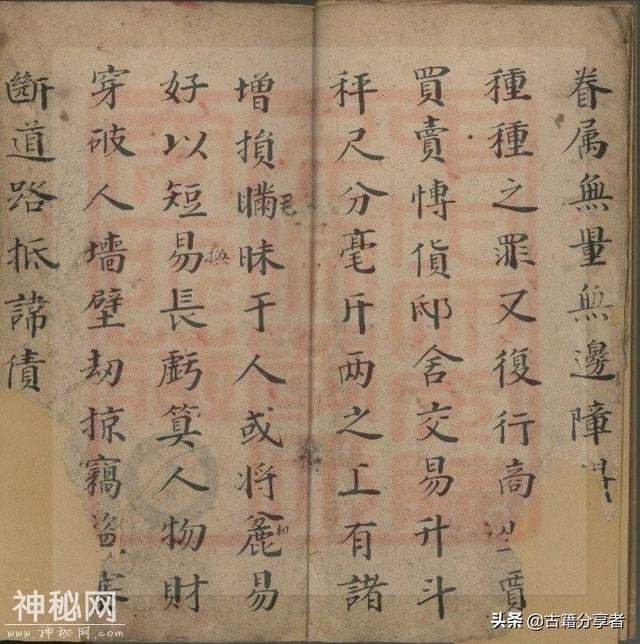 眷属無量無邊障
種種之罪又復行商賈
買賣愽貨邸舍交易升斗
秤尺分毫斤兩之工有諸
增損瞞昧于人或將麄易
好以短易長虧筭人物財
換
穿破人墙壁刧掠竊盗
斷道路抵諦債
神秘网
头条 @古籍分享者